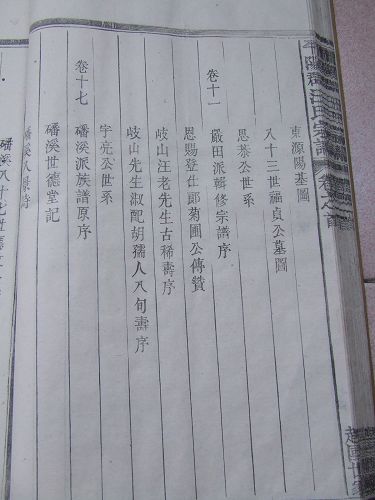 平陽郡汪氏宗譜
卷之首
東源陽基圖
八十三世福貞公墓圖
思恭公世系
卷十一
嚴田派輯修宗譜序
恩賜登仕郎菊圃公傳贊
岐山汪老先生古稀壽序
岐山先生淑配胡孺人八旬壽序
宇亮公世系
卷十七
磻溪派族譜原序
磻溪世德堂記
磻溪八景詩